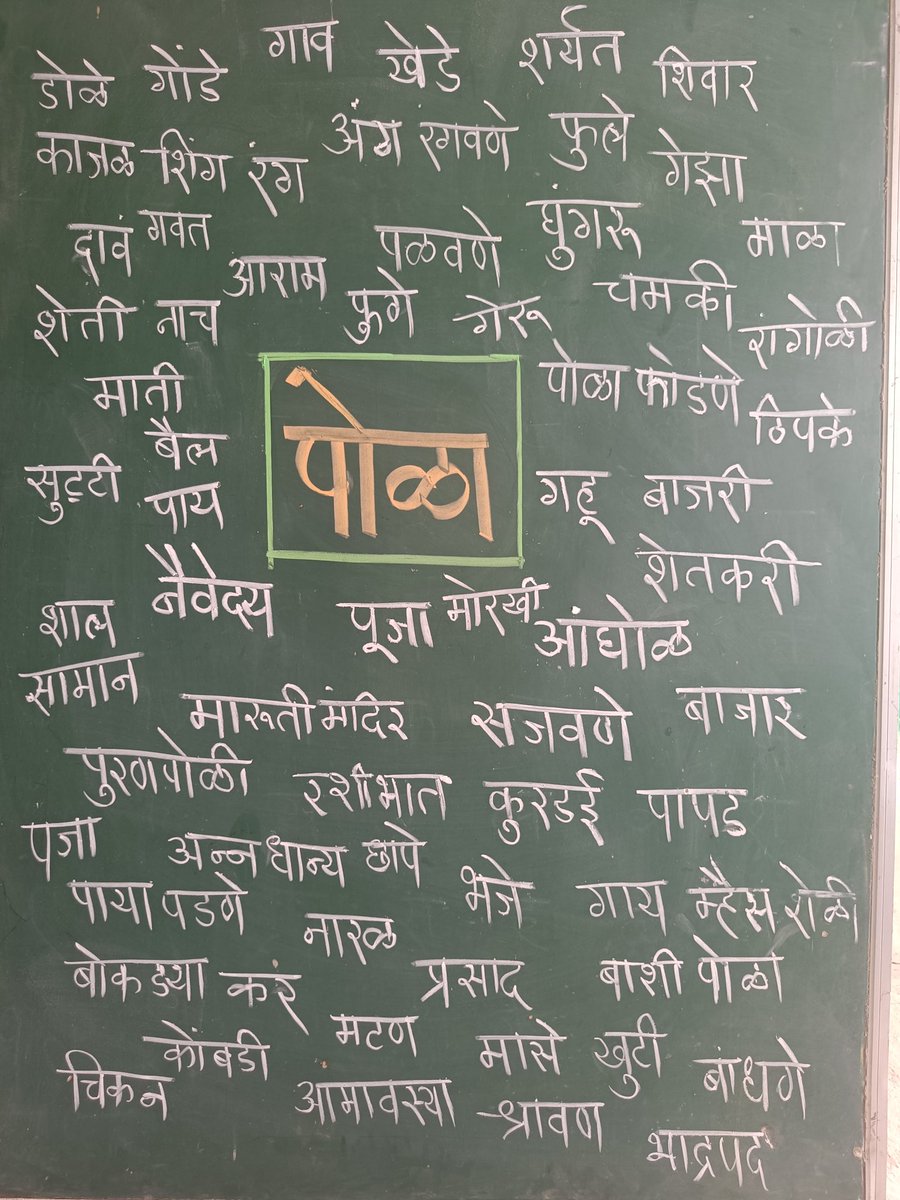 गाव खेडे शर्यत
डोळे गोंडे शिवार
अंग रगवणे फुले
काजळ शिंग रंग गेझा
दावं गवत पळवणे घुगरू माळा
आराम चमकी
शेती नाच फुगे गेरू रागोळी
माती पोळा फोडणे
ठिपके
बैल
पोळा
सुट्टी पाय गहू बाजरी
शेतकरी
नैवेद्य
शाल पूजा मोरखी आंघोळ
सामान
मारुती मंदिर सजवणे बाजार
पुरणपोळी रशीभात कुरडई पापड
पजा अन्न धान्य छापे
पाया पडणे भजे गाय म्हैस शेळी
नारळ
बोकडया करं प्रसाद बाशी पोळा
कोंबडी मटण मासे खुटी
चिकन बाधणे
आमावस्या श्रावण
भाद्रपद